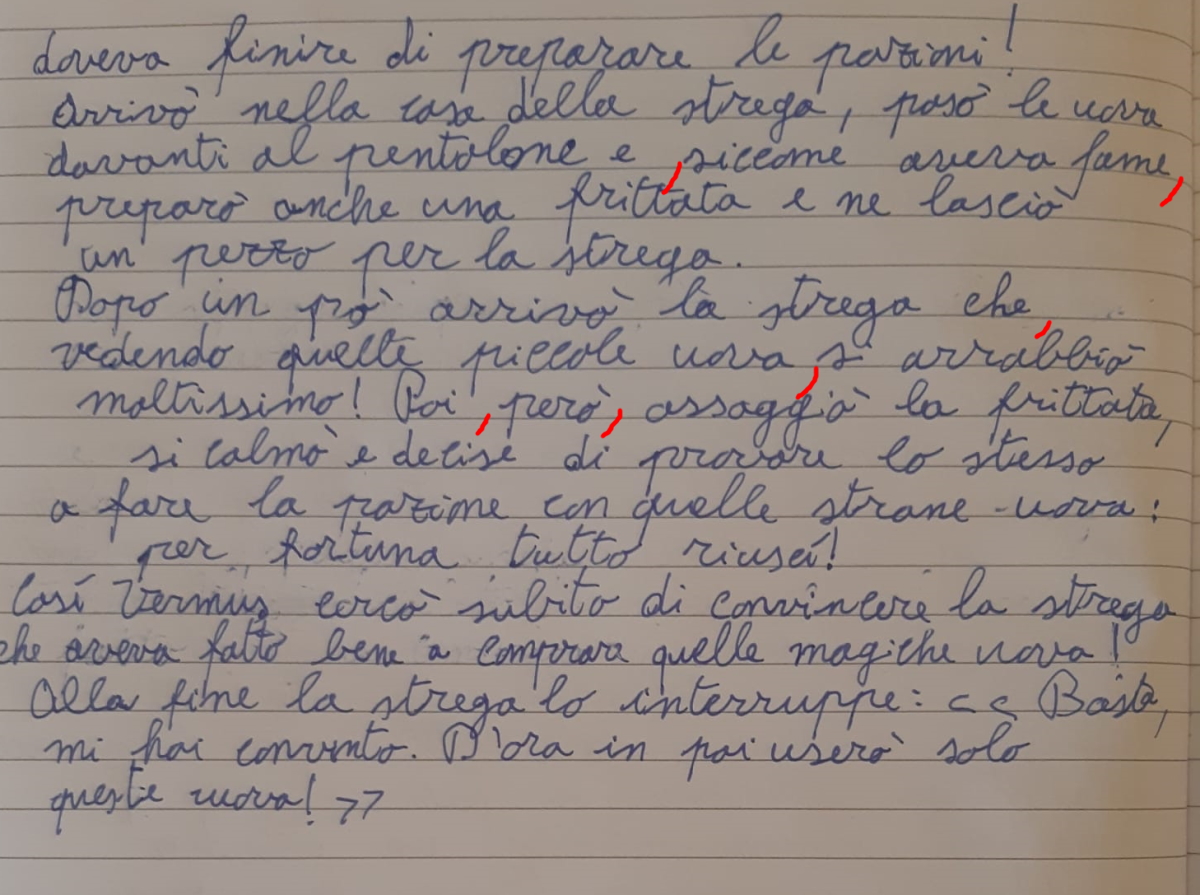 doveva finire di preparare le pozioni!
Arrivò nella casa della strega, posò le uova
davanti al pentolone e, siccome aveva fame,
preparò anche una frittata e ne lasciò
un pezzo per la strega.
Dopo un pò arrivò la strega che,
vedendo quelle piccole uova, s'arrabbiò
moltissimo! Poi, però, assaggiò la frittata,
si calmò e decise di provare lo stesso
a fare la pozione con quelle strane uova:
per fortuna tutto riuscí!
Cosí Vermus cercò subito di convincere la strega
che aveva fatto bene a comprare quelle magiche uova!
Alla fine la strega lo interruppe: << Basta,
mi hai convinto. D'ora in poi userò solo
queste uova! >>